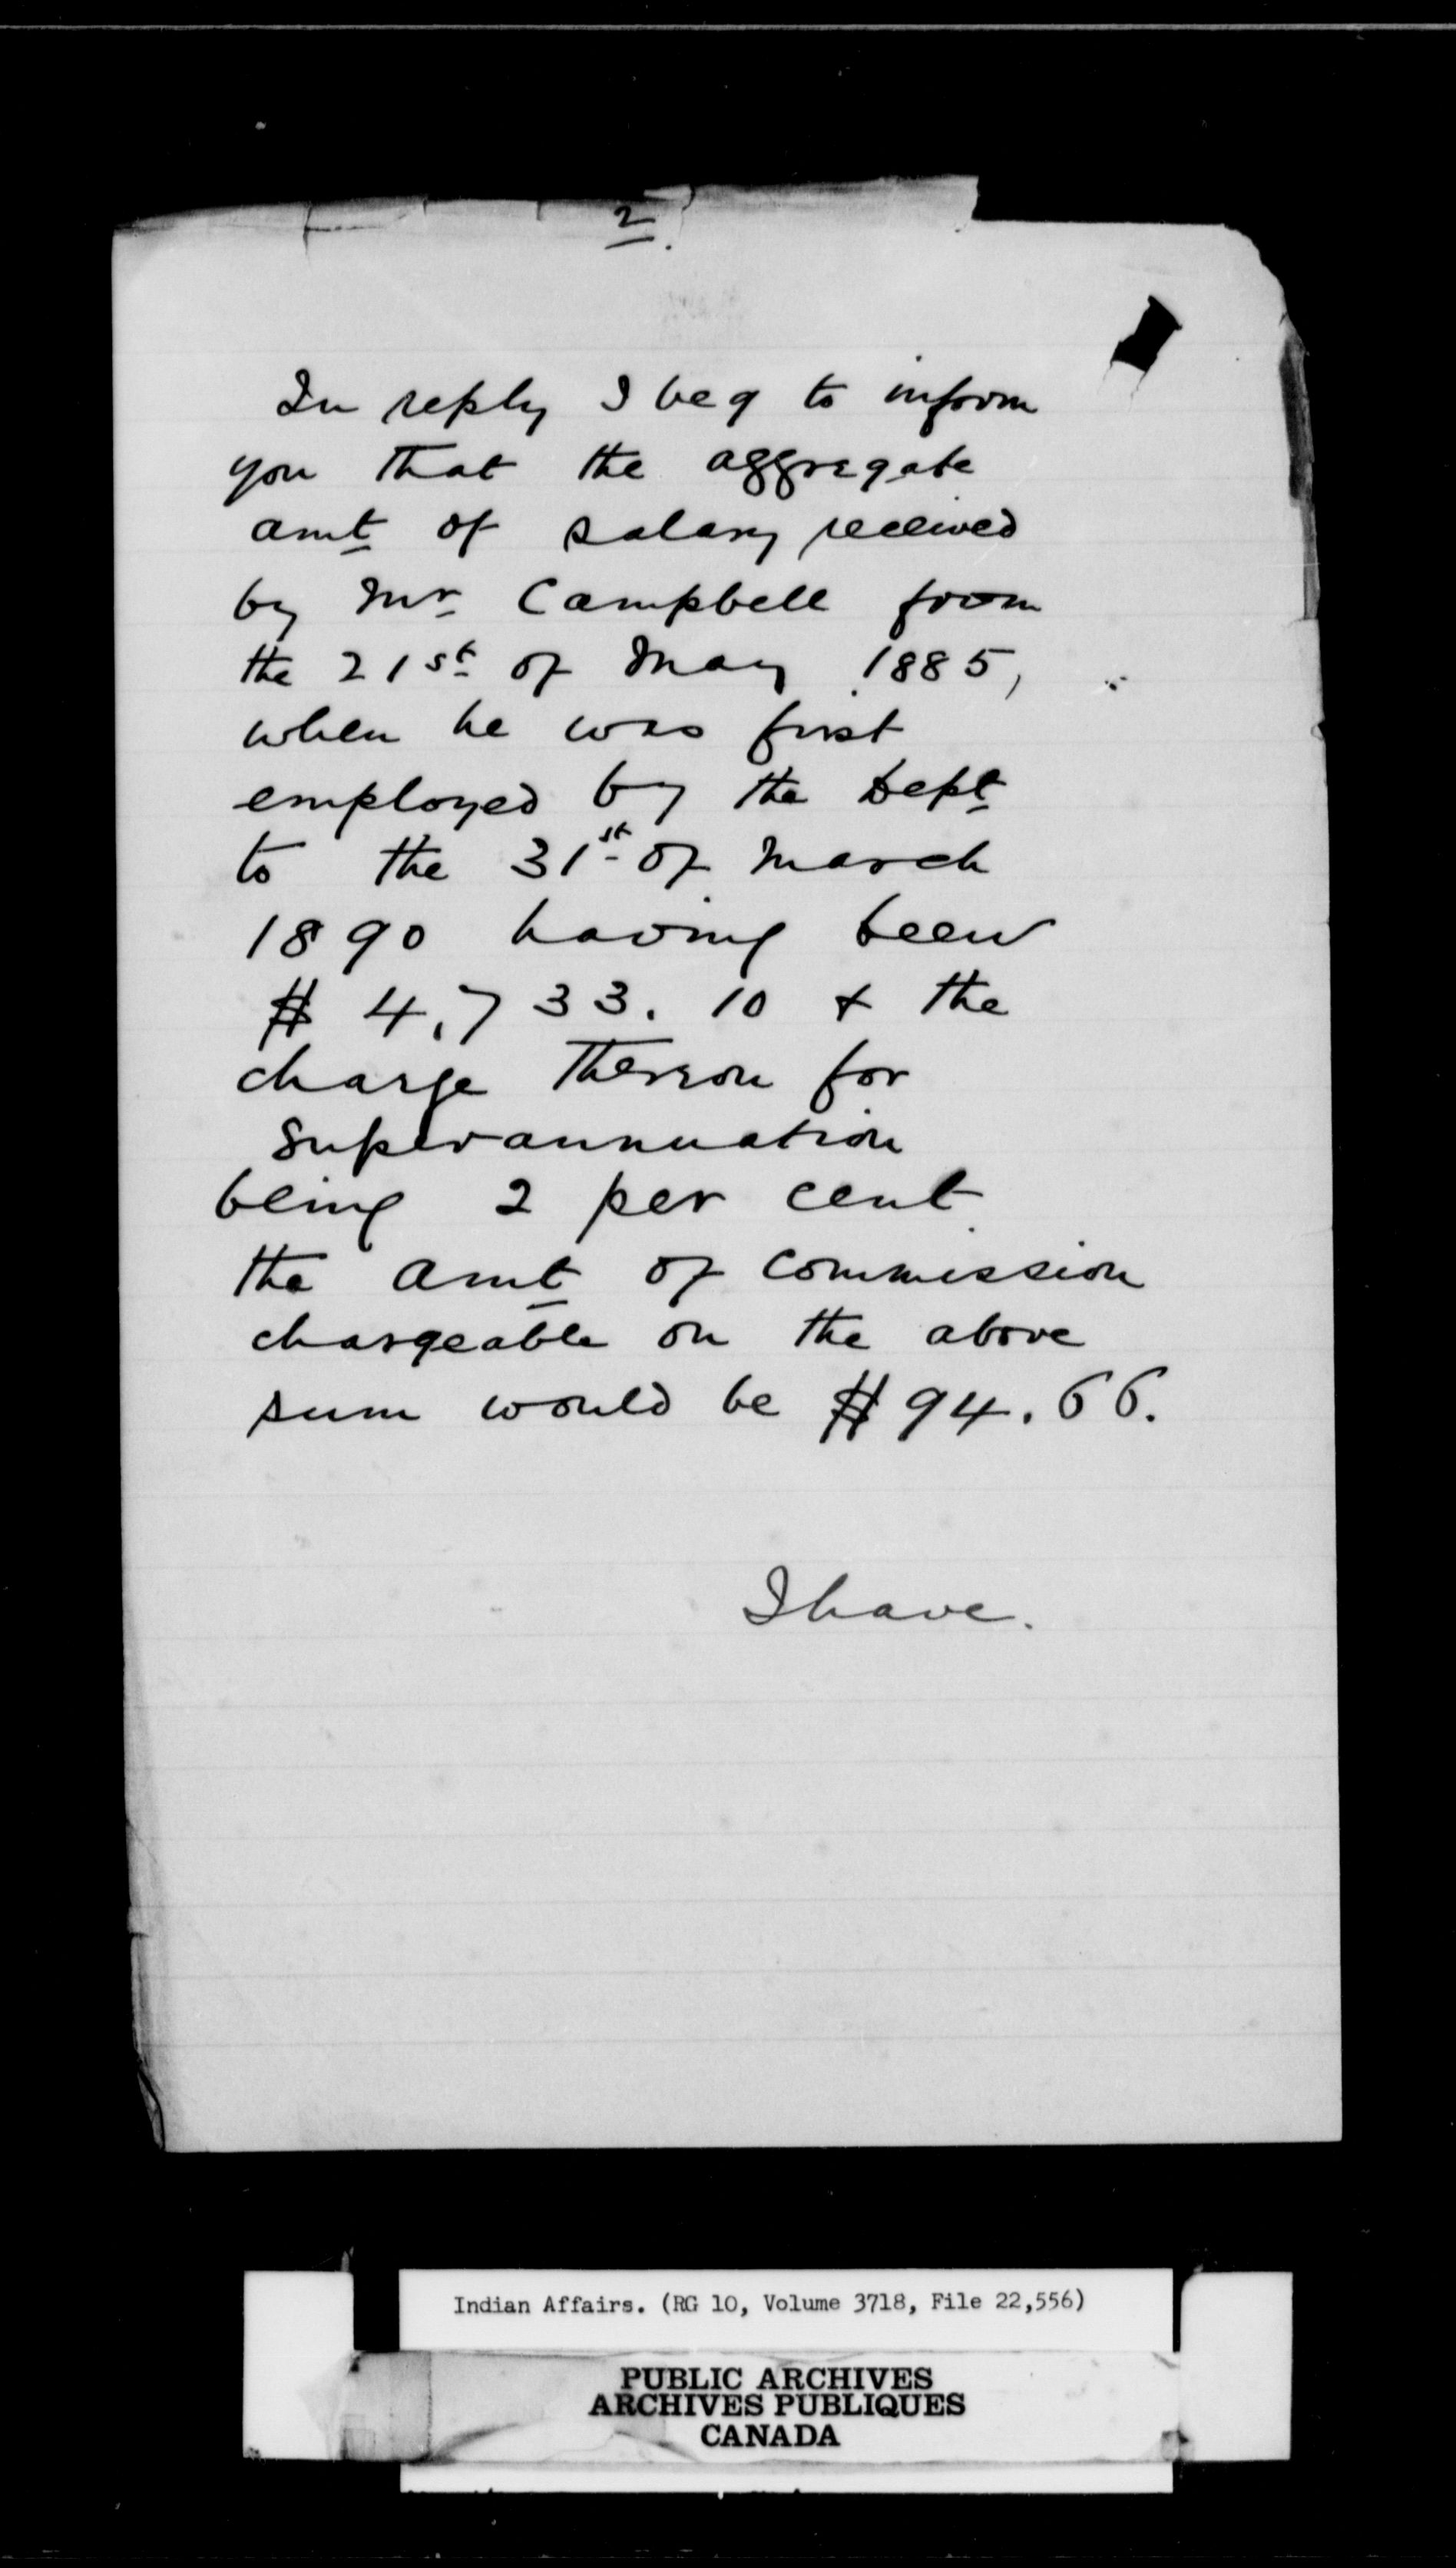 2.
In reply I beg to inform
you that the aggregate
amt of salary received
by Mr Campbell from
the 21st of May 1885,
when he was first
employed by the Dept
to the 31st of March
1890 having been
$ 4,733.10 & the
charge thereon for
Superannuation
being 2 per cent
the amt of commission
chargeable on the above
sum would be $94.66.
I have.
Indian Affairs. (RG 10, Volume 3718, File 22,556)
PUBLIC ARCHIVES
ARCHIVES PUBLIQUES
CANADA